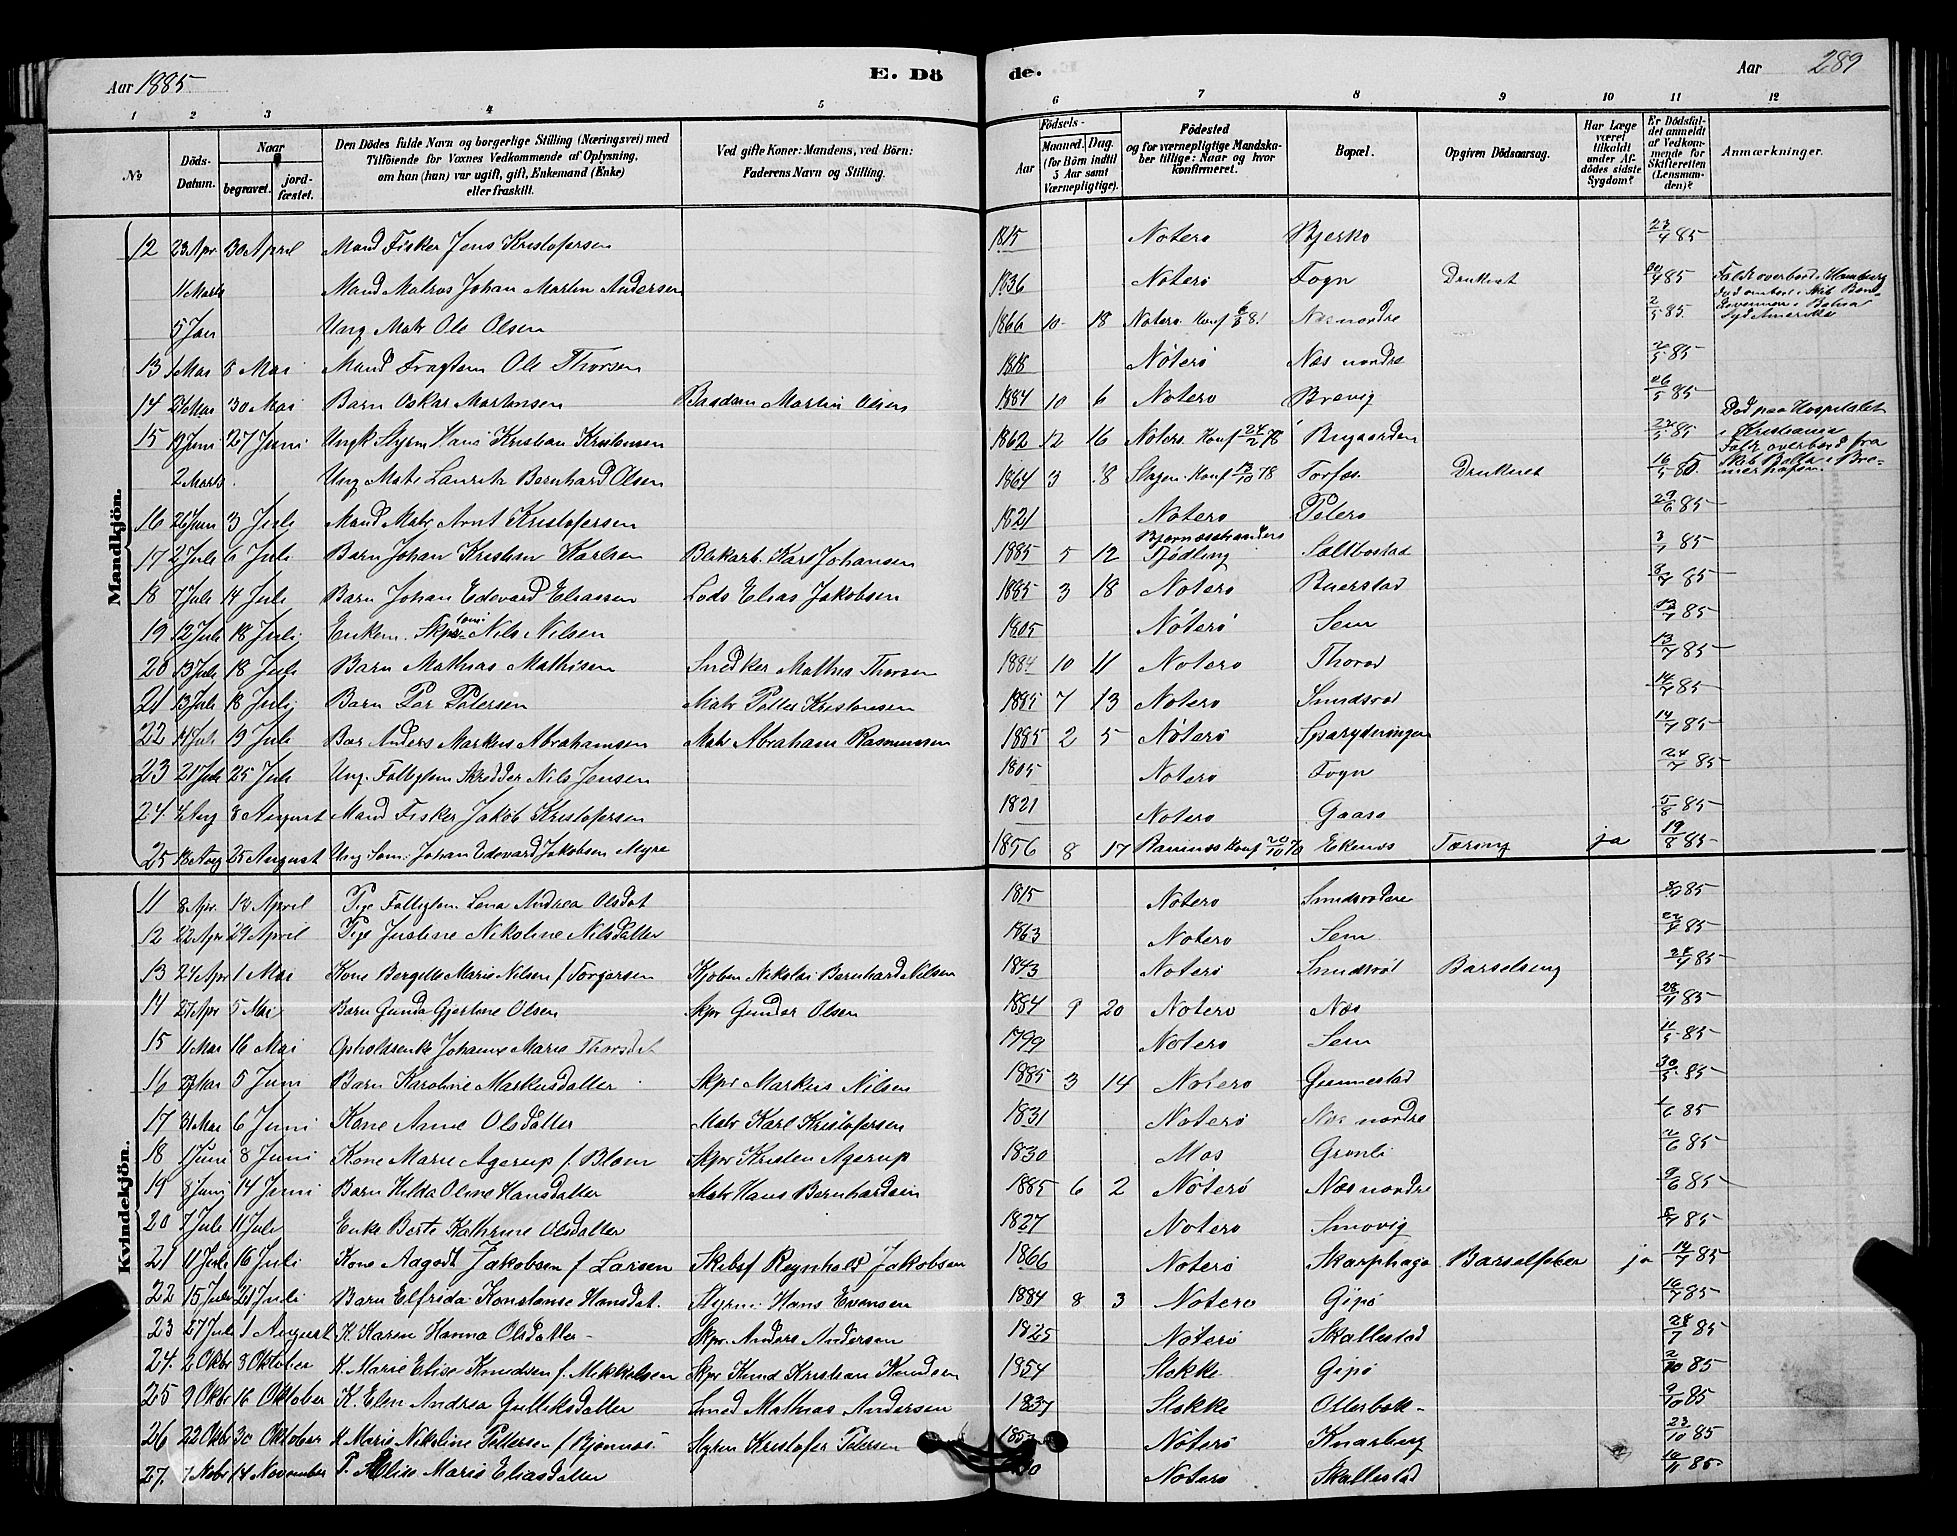 Aar 1885
E. Dö
de.
Aar 289
1 2 3 4 5 6 7 8 9 10 11 12
No
Döds-Datum.
Naar begravet. jordfæstet.
Den Dödes fulde Navn og borgerlige Stilling (Næringsvei) med
Tilföiende for Voxnes Vedkommende af Oplysning,
om han (hun) var ugift, gift, Enkemand (Enke)
eller fraskilt.
Ved gifte Koner: Mandens, ved Börn:
Faderens Navn og Stilling.
Födsels-
Aar Maaned. Dag.
(for Börn indtil 5 Aar samt Værnepligtige).
Födested
og for værnepligtige Mandskaber tillige: Naar og hvor konfirmeret.
Bopæl.
Opgiven Dödsaarsag.
Har Læge været tilkaldt under Afdödes sidste Sygdom?
Er Dödsfaldet anmeldt af Vedkommende for Skifteretten (Lensmanden)?
Anmærkninger.
Mandkjön.
12 23 Apr 30 April Mand Fisker Jens Kristofersen 1815 Noterø Bjerko 23/4 85
11 Marts Mand Matros Johan Martin Andersen 1836 Noterø Fogn Druknet 85 Faldt overbord i Hamburg
5 Jan Ung Matr Ole Olsen 1866 10 18 Noterø Konf 81 Næs nordre 2/5 85 Syd Amerika
13 1 Mai 8 Mai Mand Fragtem Ole Thorsen 1818 Nöterö Næs nordre 2/5 85
14 26 Mai 30 Mai Barn Oskar Martinsen Baadsm Martin Olsen 1884 10 6 Noterø Brevig 26/5 85
15 19 Juni 27 Juni Ungk Styrm Hans Kristian Kristensen 1862 12 16 Noterø Konf 24/2 78 Brygaarden 85 Död paa Hospitalet i Kristiania
2 Marts Ung Matr Lauritz Bernhard Olsen 1864 3 8 Slagen Konf 13/10 78 Torfæs Druknet 16/5 85 Faldt overbord fra Skib
16 26 Juni 3 Juli Mand Matr Arnt Kristofersen 1821 Noterø Peterø 29/6 85
17 2 Juli 6 Juli Barn Johan Kristian Karlsen Blikarb. Karl Johansen 1885 5 12 Tjödling Saltbostad 3/7 85
18 7 Juli 14 Juli Barn Johan Edevard Eliassen Lods Elias Jakobsen 1885 3 18 Noterø Buerstad 8/7 85
19 12 Juli 18 Juli Enkem. Skpr Nils Nilsen 1805 Nöterö Sem 13/7 85
20 13 Juli 18 Juli Barn Mathias Mathisen Snedker Mathis Thorsen 1884 10 11 Noterø Thorød 13/7 85
21 13 Juli 18 Juli Barn Per Petersen Matr Petter Kristensen 1885 7 13 Noterø Smidsrød 14/7 85
22 14 Juli 19 Juli Bar Anders Markus Abrahamsen Matr Abraham Rasmussen 1885 2 5 Nöterö 14/7 85
23 21 Juli 25 Juli Ung. Fattiglem Skredder Nils Jensen 1805 Noterø Fogn 24/7 85
24. 4 Aug 8 August Mand Fisker Jakob Kristofersen 1821 Noterø Gaasø 5/8 85
25 18 Aug 25 August Ung Söm. Johan Edevard Jakobsen Myre 1856 8 17 Ramnæs Konf 10 70 Ekenes Tæring ja 19/8 85
Kvindekjön.
11 8 Apr. 13 April Pige Fattiglem. Lena Andrea Olsdat 1815 Noterø Smidsrødere 85
12 22 Apr 29 April Pige Justine Nikoline Nilsdatter 1863 Noterø Sem 85
13 24 Apr 1 Mai Kone Bergitte Marie Nilsen f Torgersen Kjöbm Nikolai Bernhard Nilsen 1843 Noterø Smidsröd Barselseng 85
14 27 Apr 5 Mai Barn Gunda Gjertine Olsen Skpr Gunder Olsen 1884 9 20 Noterø Næs 28/4 85
15 11 Mai 16 Mai Opholdsenke Johanne Marie Thorsdat 1799 Noterø Sem 11/5 85
16 29 Mai 5 Juni Barn Karoline Markusdatter Skpr Markus Nilsen 1885 3 14 Noterø Gunnestad 30/5 85
17 31 Mai 6 Juni Kone Anne Olsdatter Matr Karl Kristofersen 1831 Noterø Næs nordre 1/6 85
18 1 Juni 8 Juni Kone Marie Agerup f. Bloen Skpr Kristen Agerup 1830 Mos Grønli 2/6 85
19 8 Juni 14 Juni Barn Hilda Oline Hansdatter Matr Hans Bernhardsen 1885 6 2 Nöterö Næs nordre 9/6 85
20 7 Juli 11 Juli Enke Berte Kathrine Olsdatter 1827 Noterø Smovig 8/7 85
21 11 Juli 16 Juli Kone Aagodt Jakobsen f Larsen Skibsf Reynhold Jakobsen 1866 Noterö Skarphaga Barselfeber ja 14/7 85
22 15 Juli 21 Juli Barn Elfrida Konstanse Hansdat. Styrm Hans Evensen 1884 8 3 Noterø Gipö 16/7 85
23 27 Juli 1 August K. Karen Hanna Olsdatter Skpr. Anders Andersen 1825 Nöterö Skallestad 28/7 85
24. 2 Oktbr 8 Oktober K. Marie Elise Knudsen f. Mikkelsen Skpr Knud Kristian Knudsen 1854 Stokke Gipö 2/10 85
25 9 Oktbr 16 Oktober K. Elen Andrea Gulliksdatter Smed Mathias Andersen 1837 Stokke Otterbæk 9/10 85
26 22 Oktbr 30 Oktober K Marie Nikoline Pettersen f Bjonnes Styrm Kristofer Petersen Nöterö Knarberg 23/10 85
27. 7 Nobr 14 November P. Elise Marie Eliasdatter Noterø Skallestad 11 85